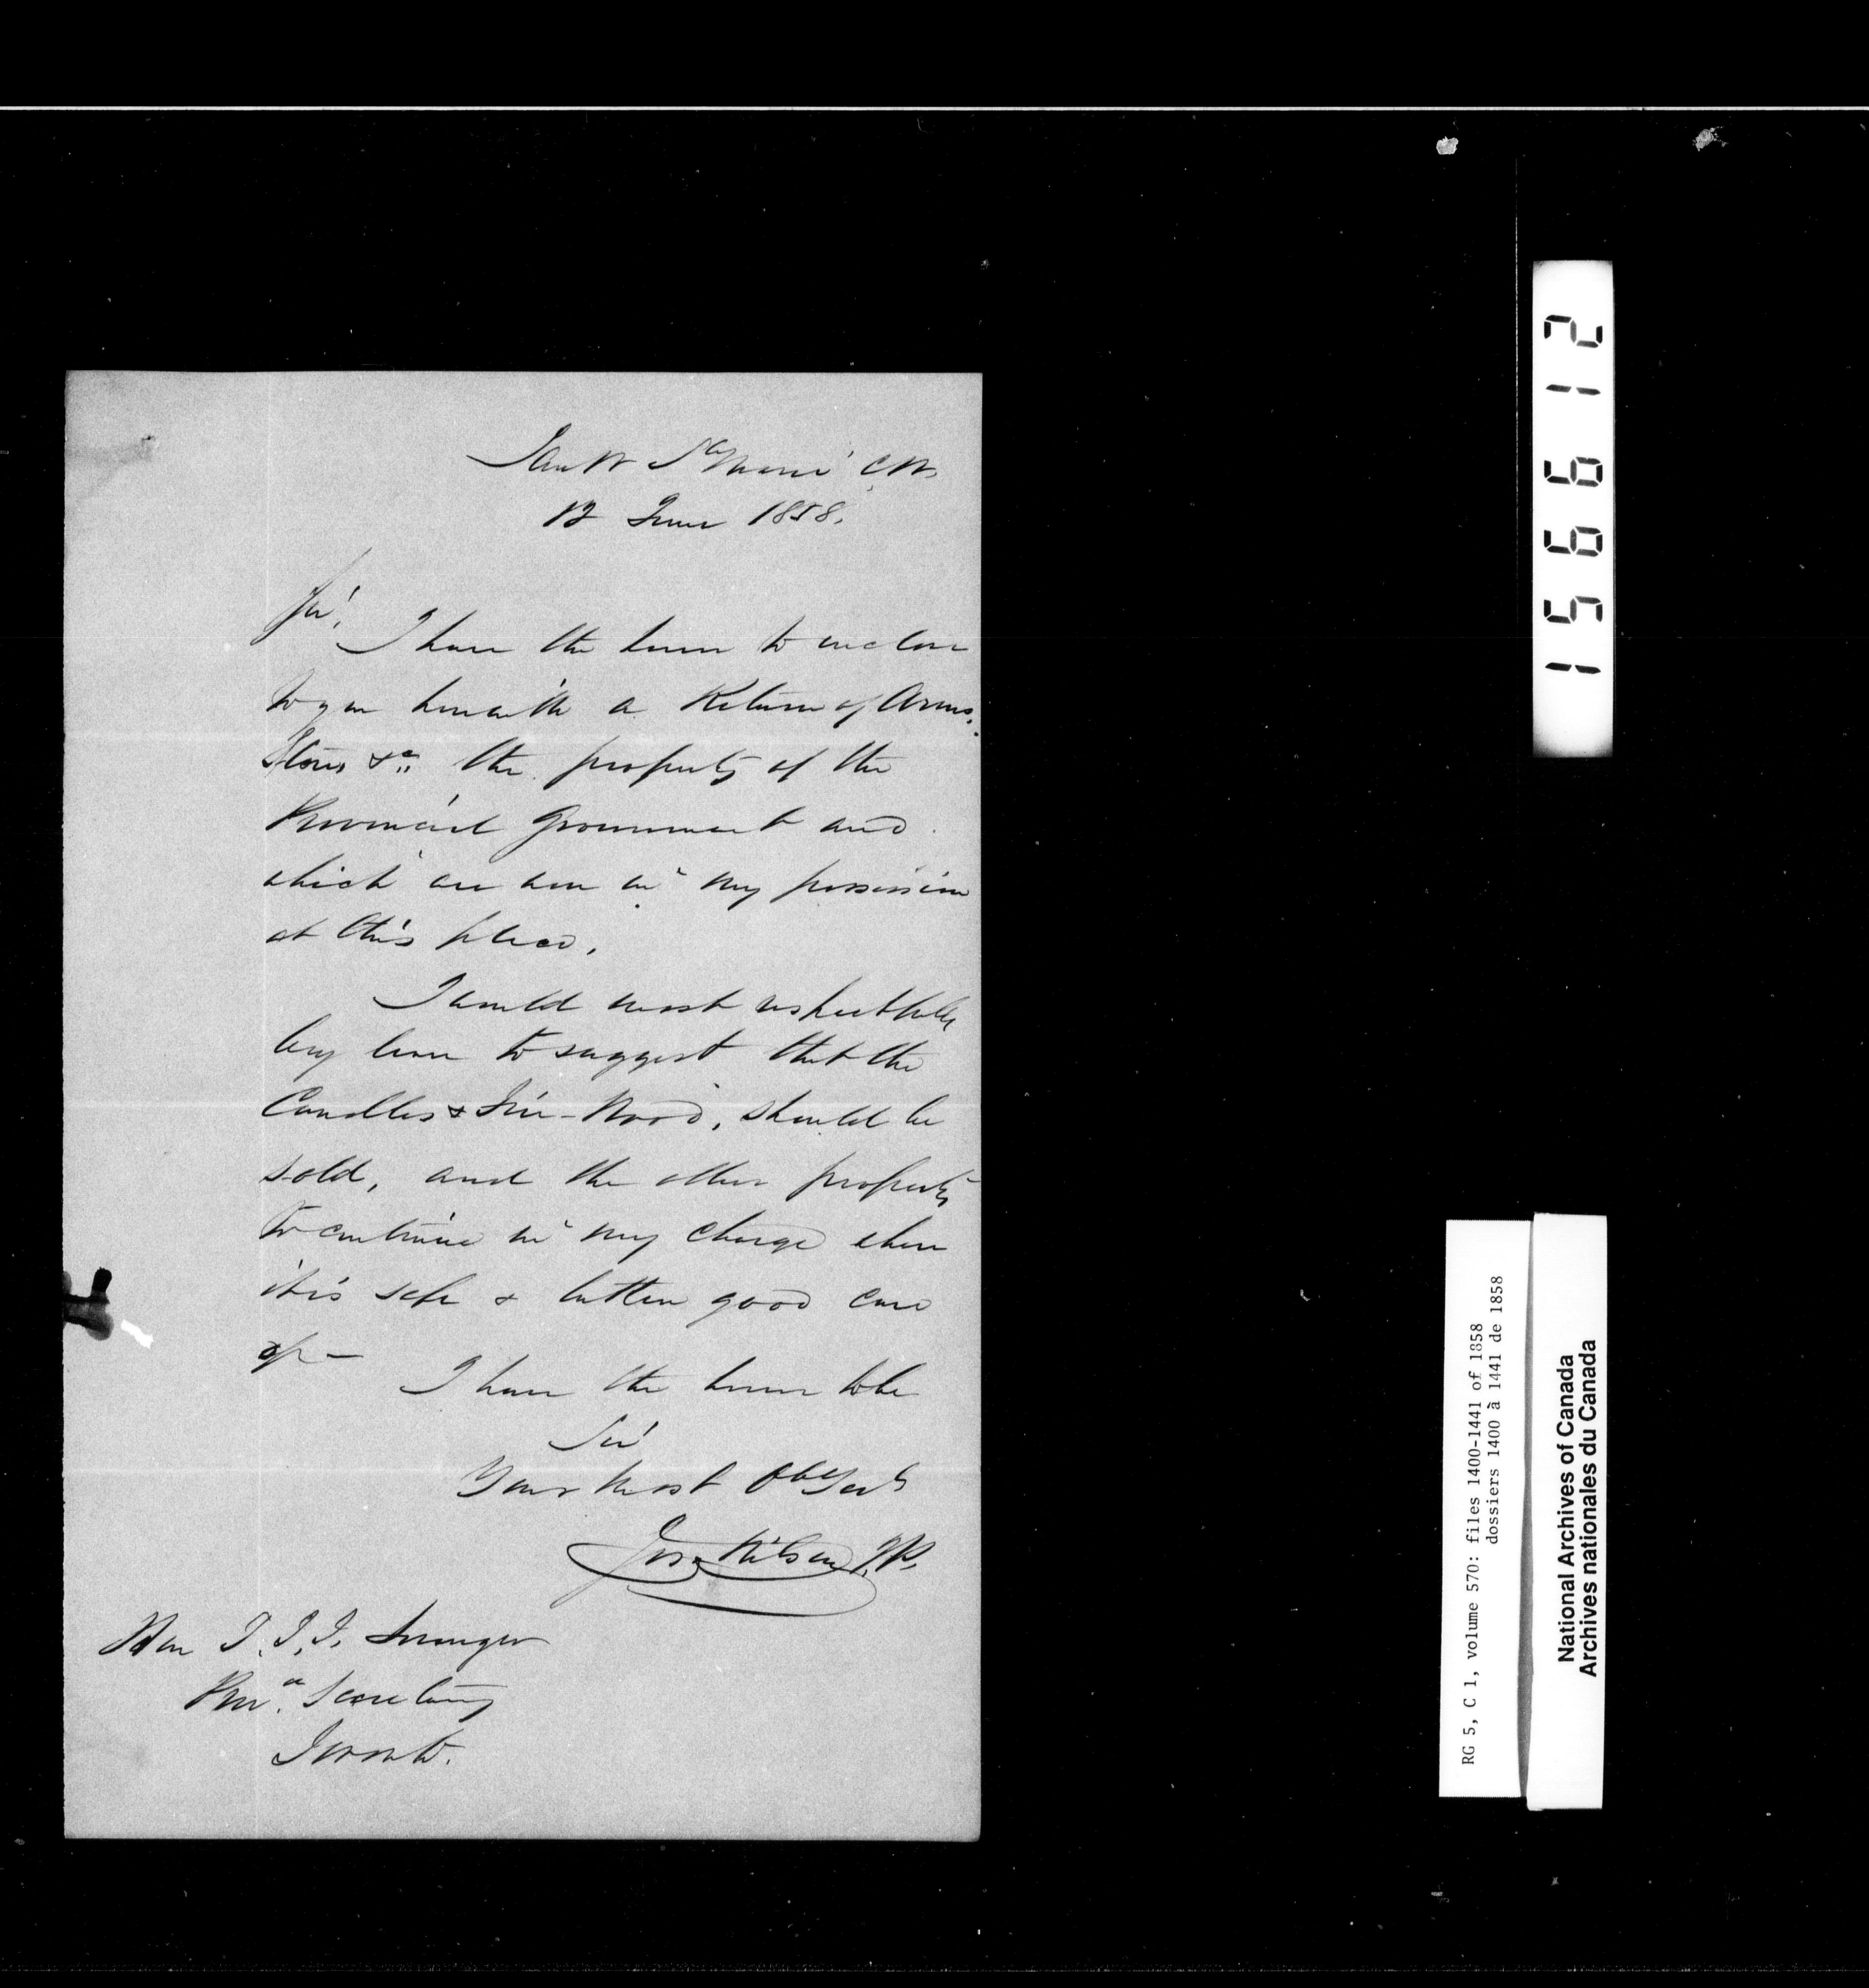 Sault Ste Marie C.W.
12 June 1858.
Sir,
I have the honor to enclose
to you herewith a Return of Arms,
Stores &c. the property of the
Provincial Government and
which are now in my possession
at this place.
I would most respectfully
beg leave to suggest that the
Candles & Fire-Wood, should be
sold, and the other property
to continue in my charge where
it is safe & taken good care
of —
I have the honor to be
Sir
Your most Obt Servt
Jos. Wilson J.P.
Hon T. J. J. Loranger
Provl. Secretary
Toronto.
156612
RG 5, C 1, volume 570: files 1400-1441 of 1858
dossiers 1400 à 1441 de 1858
National Archives of Canada
Archives nationales du Canada